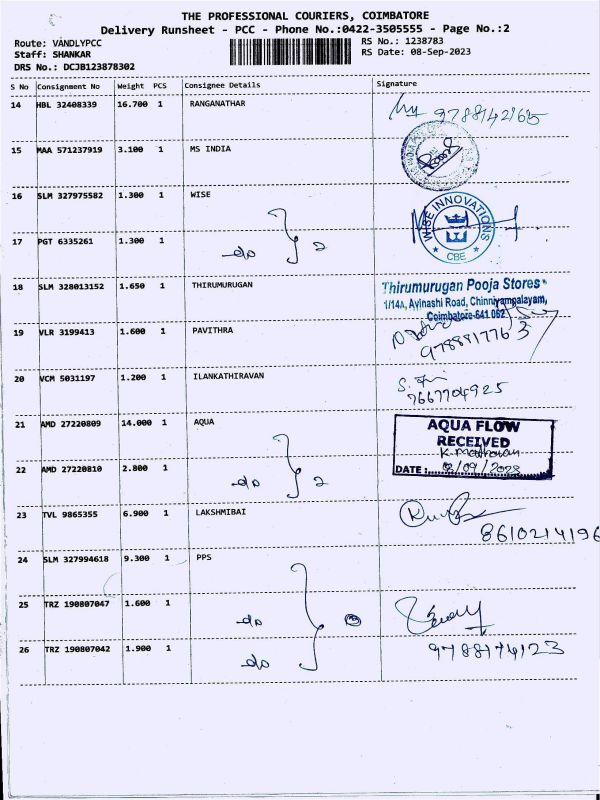 THE PROFESSIONAL COURIERS, COIMBATORE
Delivery Runsheet - PCC - Phone No.:0422-3505555 - Page No.:2
Route: VANDLYPCC
Staff: SHANKAR
DRS No.: DCJB123878302
RS No.: 1238783
RS Date: 08-Sep-2023
S No Consignment No Weight PCS Consignee Details Signature
14 HBL 32408339 16.700 1 RANGANATHAR 9788142165
15 MAA 571237919 3.100 1 MS INDIA
16 SLM 327975582 1.300 1 WISE
WISE INNOVATIONS
CBE
17 PGT 6335261 1.300 1 do 2
18 SLM 328013152 1.650 1 THIRUMURUGAN
Thirumurugan Pooja Stores
1/14A, Avinashi Road, Chinniyampalayam,
Coimbatore-641 062
19 VLR 3199413 1.600 1 PAVITHRA 9788817763
20 VCM 5031197 1.200 1 ILANKATHIRAVAN 7667704925
21 AMD 27220809 14.000 1 AQUA
AQUA FLOW
RECEIVED
DATE:
22 AMD 27220810 2.800 1 do 2
23 TVL 9865355 6.900 1 LAKSHMIBAI
8610214196
24 SLM 327994618 9.300 1 PPS
25 TRZ 190807047 1.600 1 do
26 TRZ 190807042 1.900 1 do 9788174123